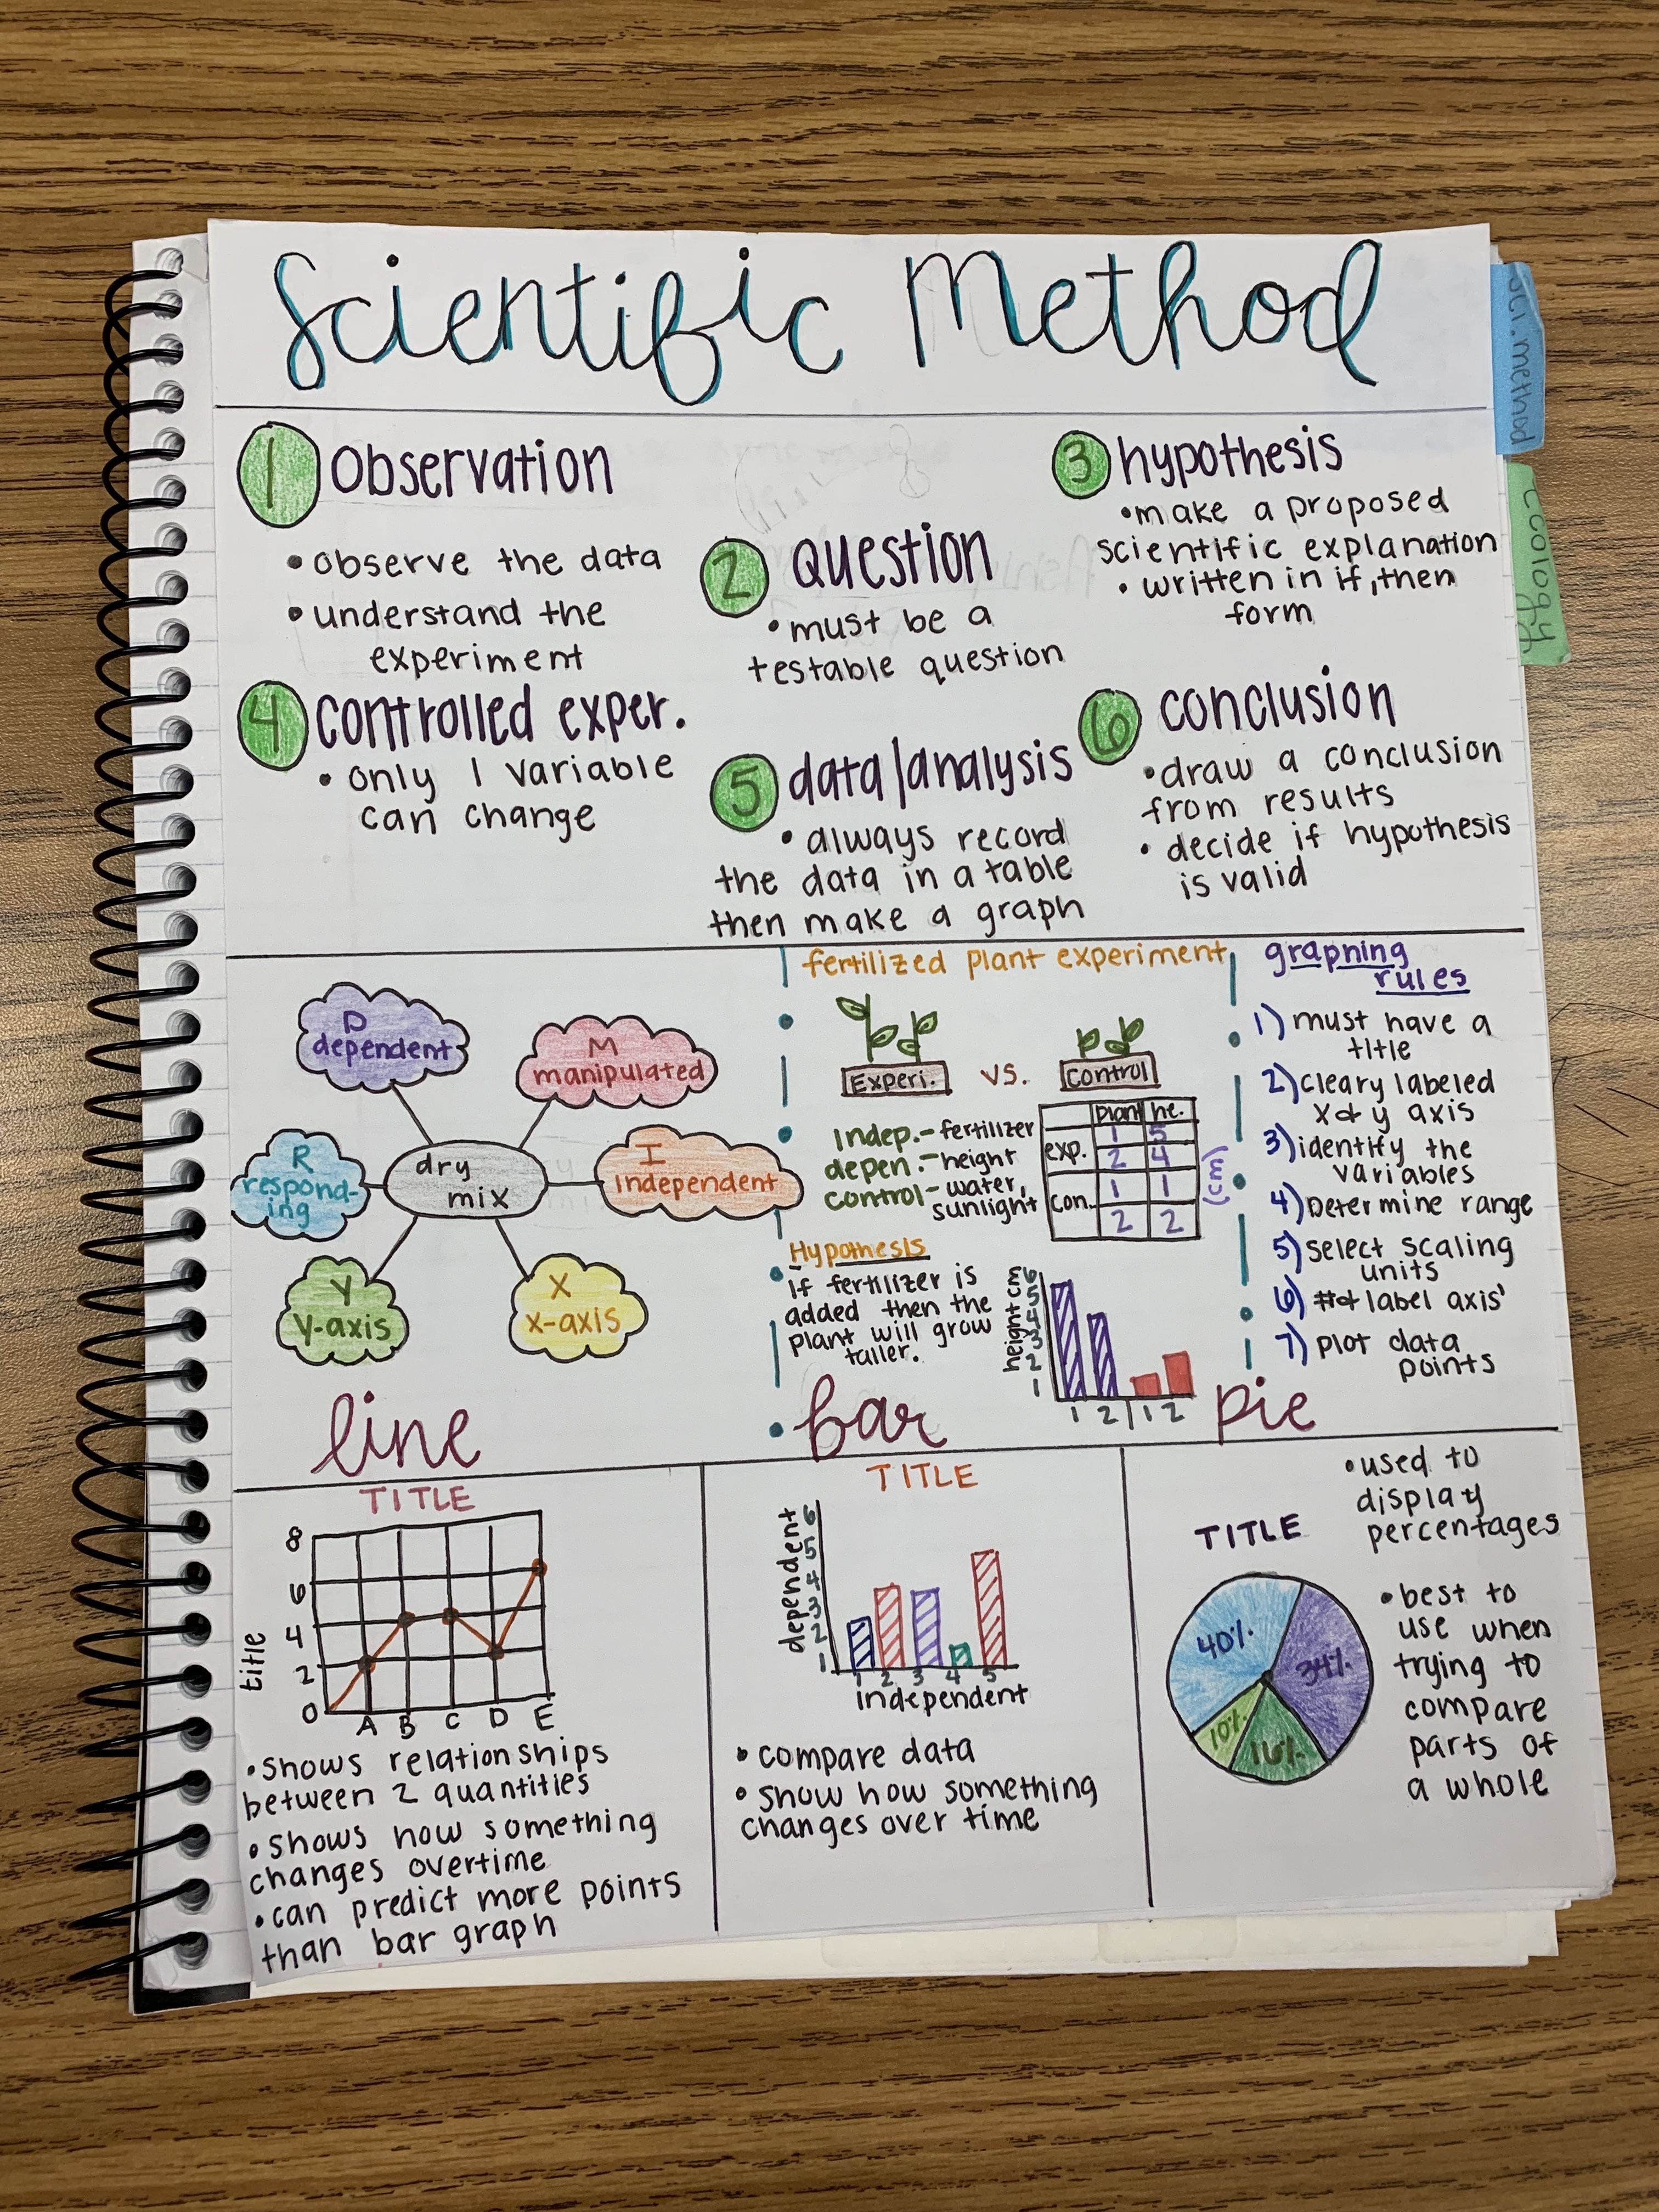 Scientific Method
sci. method
Ecology
1 Observation
• observe the data
• understand the
experiment
2 question
• must be a
testable question
3 hypothesis
• make a proposed
scientific explanation
• written in if, then
form
4 controlled exper.
• only 1 variable
can change
5 data/analysis
• always record
the data in a table
then make a graph
6 conclusion
• draw a conclusion
from results
• decide if hypothesis
is valid
D
dependent
M
manipulated
R
respond-
ing
dry
mix
I
Independent
Y
Y-axis
X
X-axis
fertilized plant experiment
Experi. vs. Control
Indep. - fertilizer
depen. - height
control - water,
sunlight
plant he.
exp. 1 5
2 4
con. 1 1
2 2
(cm)
Hypothesis
- If fertilizer is
added then the
plant will grow
taller.
height cm
6
5
4
3
2
1
1 2 | 1 2
graphing
rules
1) must have a
title
2) Cleary labeled
x & y axis
3) identify the
variables
4) Determine range
5) select scaling
units
6) # & label axis'
7) plot data
points
line
TITLE
title
8
6
4
2
0
A B C D E
• shows relationships
between 2 quantities
• shows how something
changes overtime
• can predict more points
than bar graph
bar
TITLE
dependent
6
5
4
3
2
1
1 2 3 4 5
independent
• compare data
• show how something
changes over time
pie
• used to
display
percentages
TITLE
40%
34%
10%
16%
• best to
use when
trying to
compare
parts of
a whole